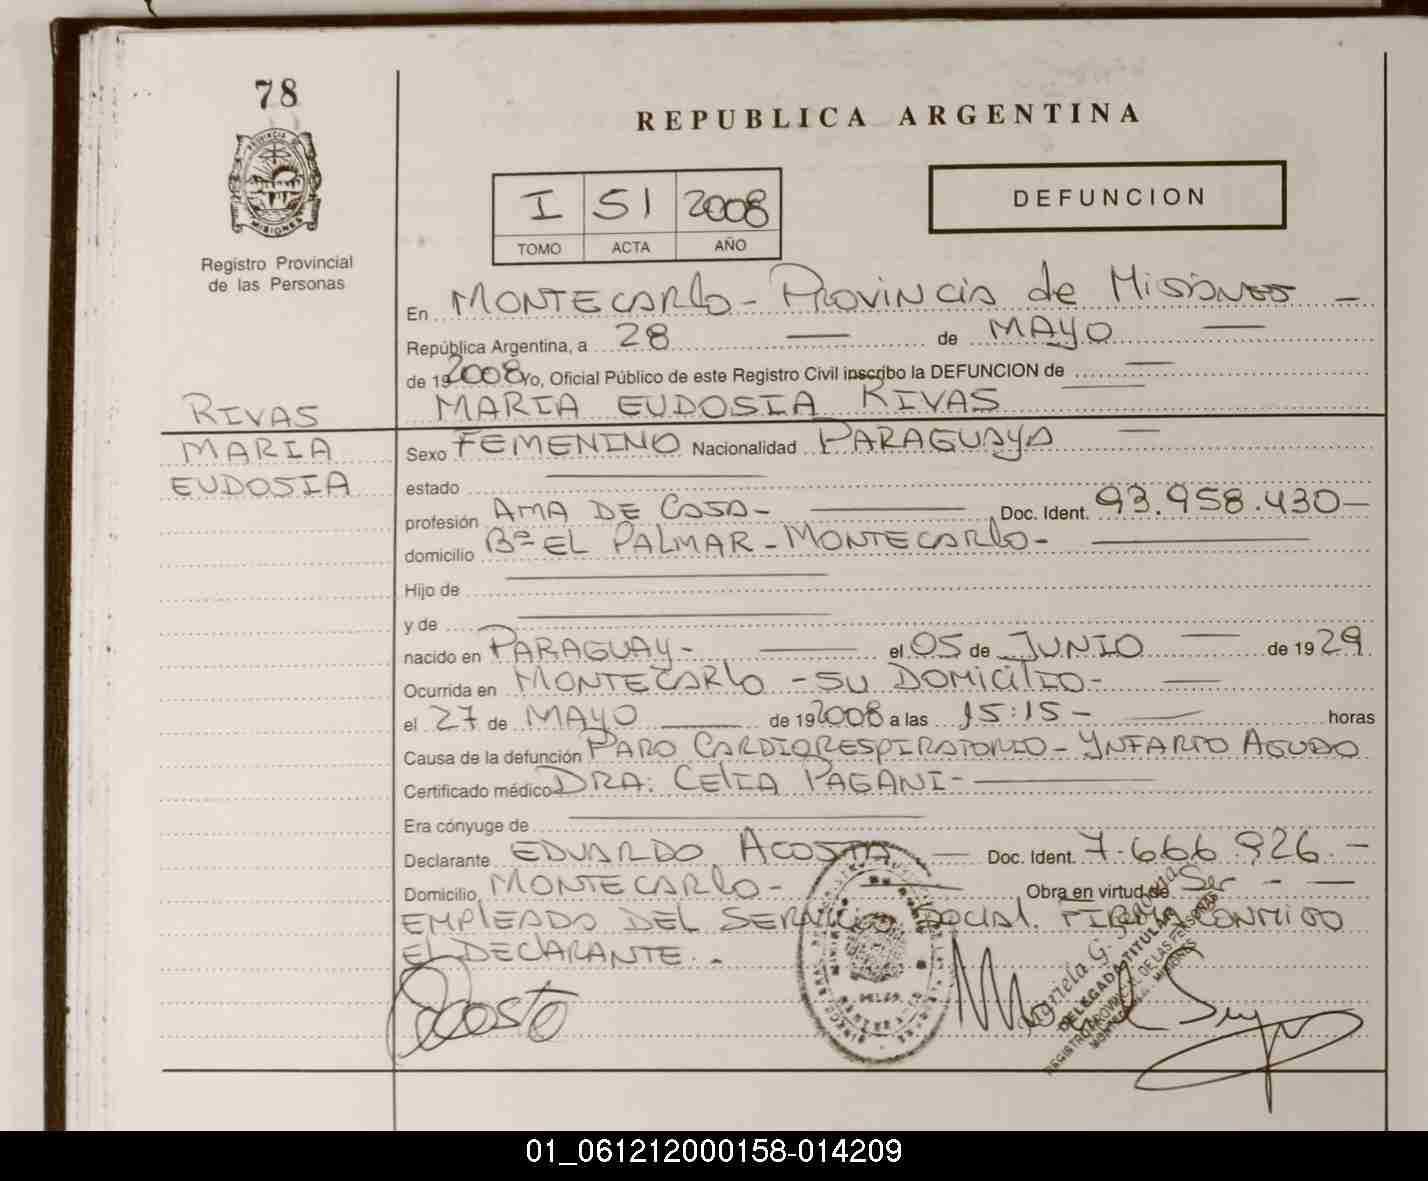 78
PROVINCIA DE
MISIONES
Registro Provincial
de las Personas
REPUBLICA ARGENTINA
I 51 2008
TOMO ACTA AÑO
DEFUNCION
En MONTECARLO - PROVINCIA de MISIONES -
República Argentina, a 28 de MAYO
de 19 2008 Yo, Oficial Público de este Registro Civil inscribo la DEFUNCION de
MARIA EUDOSIA RIVAS
RIVAS
MARIA
EUDOSIA
Sexo FEMENINO Nacionalidad PARAGUAYA
estado
profesión AMA DE CASA - Doc. Ident. 93.958.430 -
domicilio Bº EL PALMAR - MONTECARLO -
Hijo de
y de
nacido en PARAGUAY - el 05 de JUNIO de 1929
Ocurrida en MONTECARLO - SU DOMICILIO -
el 27 de MAYO de 19 2008 a las 15:15 - horas
Causa de la defunción PARO CARDIORESPIRATORIO - YNFARTO AGUDO
Certificado médico DRA: CELIA PAGANI -
Era cónyuge de
Declarante EDUARDO ACOSTA - Doc. Ident. 7.666.926 . -
Domicilio MONTECARLO - Obra en virtud de Ser - -
EMPLEADO DEL SERVICIO SOCIAL. FIRMA CONMIGO
EL DECLARANTE. -
Acosta
DELEGADA TITULAR
REGISTRO PROVINCIAL DE LAS PERSONAS
01_061212000158-014209